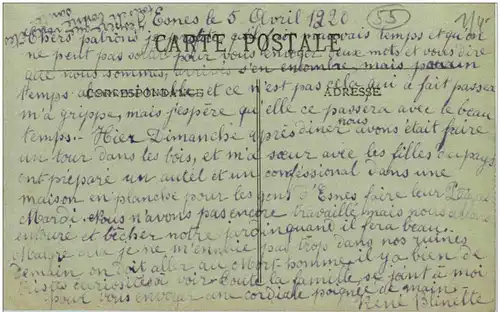 Esnes le 5 Avril 1920
55
Chers patrons je
temps et qu'on
CARTE POSTALE
ne peut pas pour vous envoyer deux mots et vous dire
que nous sommes arrivés s'en encombre mais par un
temps
CORRESPONDANCE
et ce n'est pas cela qui a fait passer
ADRESSE
m'a grippe, mais j'espère qu'elle ce passera avec le beau
temps. - Hier Dimanche après diner nous avons était faire
un tour dans les bois, et m'a sœur avec les filles du pays
ont préparé un autel et un confessional dans une
maison en planche pour les gens d'Esnes faire leur Pâques
Mardi. Nous n'avons pas encore travaillé mais nous allons
entouré et bêcher notre jardin quand il fera beau.
Malgré que je ne m'ennuie pas trop dans nos ruines
Demain on doit aller au Mort-homme il y a bien de
curiosités a voir. Toute la famille se joint à moi
pour vous envoyer une cordiale poignée de main.
René Blinette